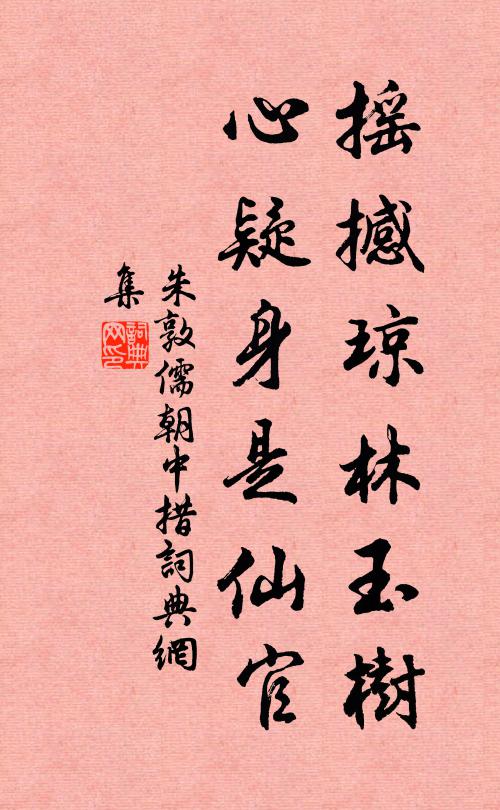 摇撼琼林玉樹
心疑身是仙官
朱敦儒朝中措詞典網
集
詞典
网印